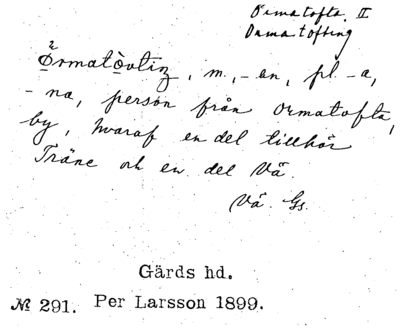 Ormatofta. II
Ormatofting
Ormatòvtiŋ, m., -en, pl. -a,
-na, person från Ormatofta,
by, hvaraf en del tillhör
Träne och en del Vä.
Vä. Gs.
Gärds hd.
№ 291. Per Larsson 1899.